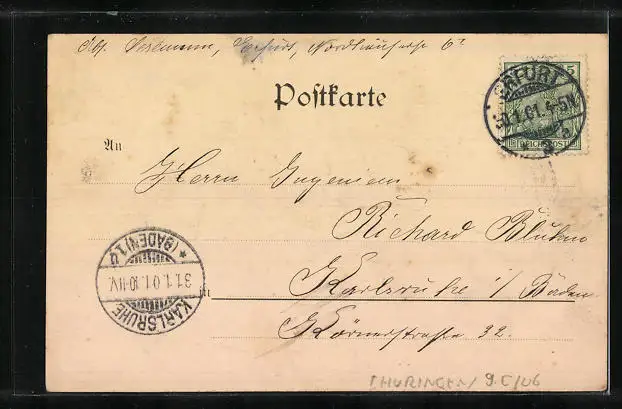 Erfurt, Nordhäuserstr 6
5
REICHSPOST
ERFURT
30.1.01.4-5N
Postkarte
An
Herrn Ingenieur
Richard
in Karlsruhe i/Baden
Körnerstrasse 32.
KARLSRUHE
31.1.01.10-11V.
* (BADEN) 1.
THÜRINGEN / 9.C/06